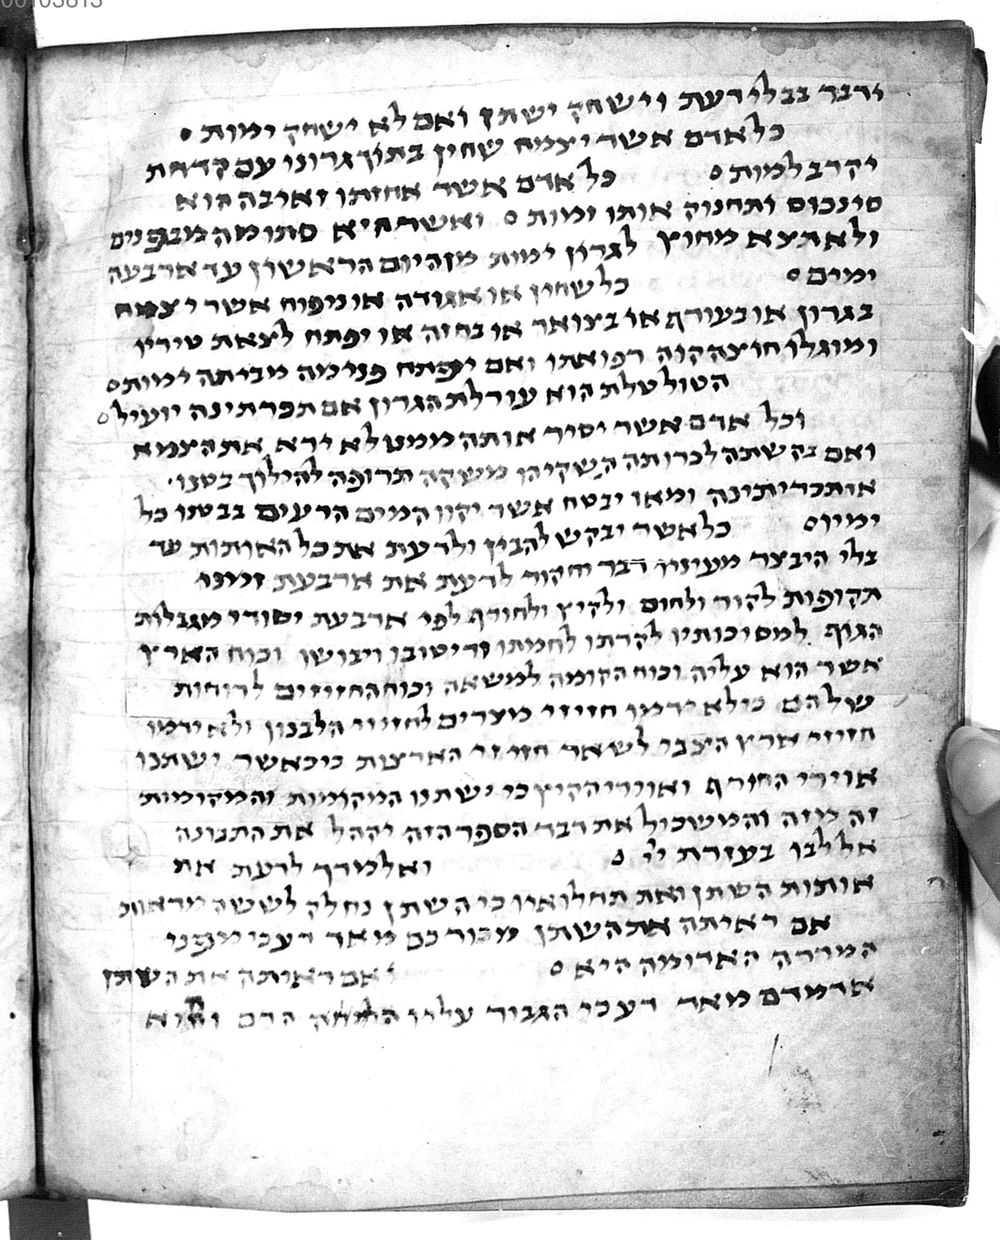 00103813
וידבר בבלי דעת וישחק ישתן ואם לא ישחק ימות
כל אדם אשר יצמח שחין בתוך גרונו עם קדחת
יקרב למות כל אדם אשר אחזתו זאיבה הוא
סינכוס ותחנוק אותו ימות ואשר היא סתומה מבפנים
ולא תצא מחוץ לגרון ימות מן היום הראשון עד ארבעה
ימים כל שחין או אגודה או ניפוח אשר יצמח
בגרון או בעורף או בצואר או בחזה או יפתח לצאת טיריו
ומוגלו חוצה קוה רפואתו ואם יפתח פנימה מביתה ימות
הטולטלת הוא עורלת הגרון אם תכרתינה יועיל
וכל אדם אשר יסיר אותה ממנו לא ירא את הצמא
ואם בה שתה לכרותה השקיהו משקה תרופה להילוך בטנו
או תכריתינה ומאו יבטח אשר יקוו המים הרעים בבטנו כל
ימיו כל אשר יבקש להבין ולדעת את כל האותות עד
בלי היבצר מעיניו דבר וחקור לדעת את ארבעת זמני
תקופות לקור ולחום ולקיץ ולחורף לפי ארבעת יסודי מגבלות
הגוף למסיכותיו לקרתו לחמתו ורטובו ויבושו וכוח הארץ
אשר הוא עליה וכוח הקומה למשאה וכוח החזיזים לרוחות
שלהם כי לא ידמו חזיזי מצרים לחזיזי הלבנון ולא ידמו
חזיזי ארץ הצבי לשאר חזיזי הארצות כי כאשר ישתנו
אוירי החורף ואוירי הקיץ כי ישתנו המקומות והמקומות
זה מזה והמשכיל את דבר הספר הזה יקהל את התבונה
אל לבו בעזרת ייי ואלמדך לדעת את
אותות השתן ואת תחלואיו כי השתן נחלק לששה מראות
אם ראיתה את השתן מכורכם מאד דע כי מפני
המררה האדומה היא ואם ראיתה את השתן
אדמדם מאד דע כי הגביר עליו הליחה הדם והוא